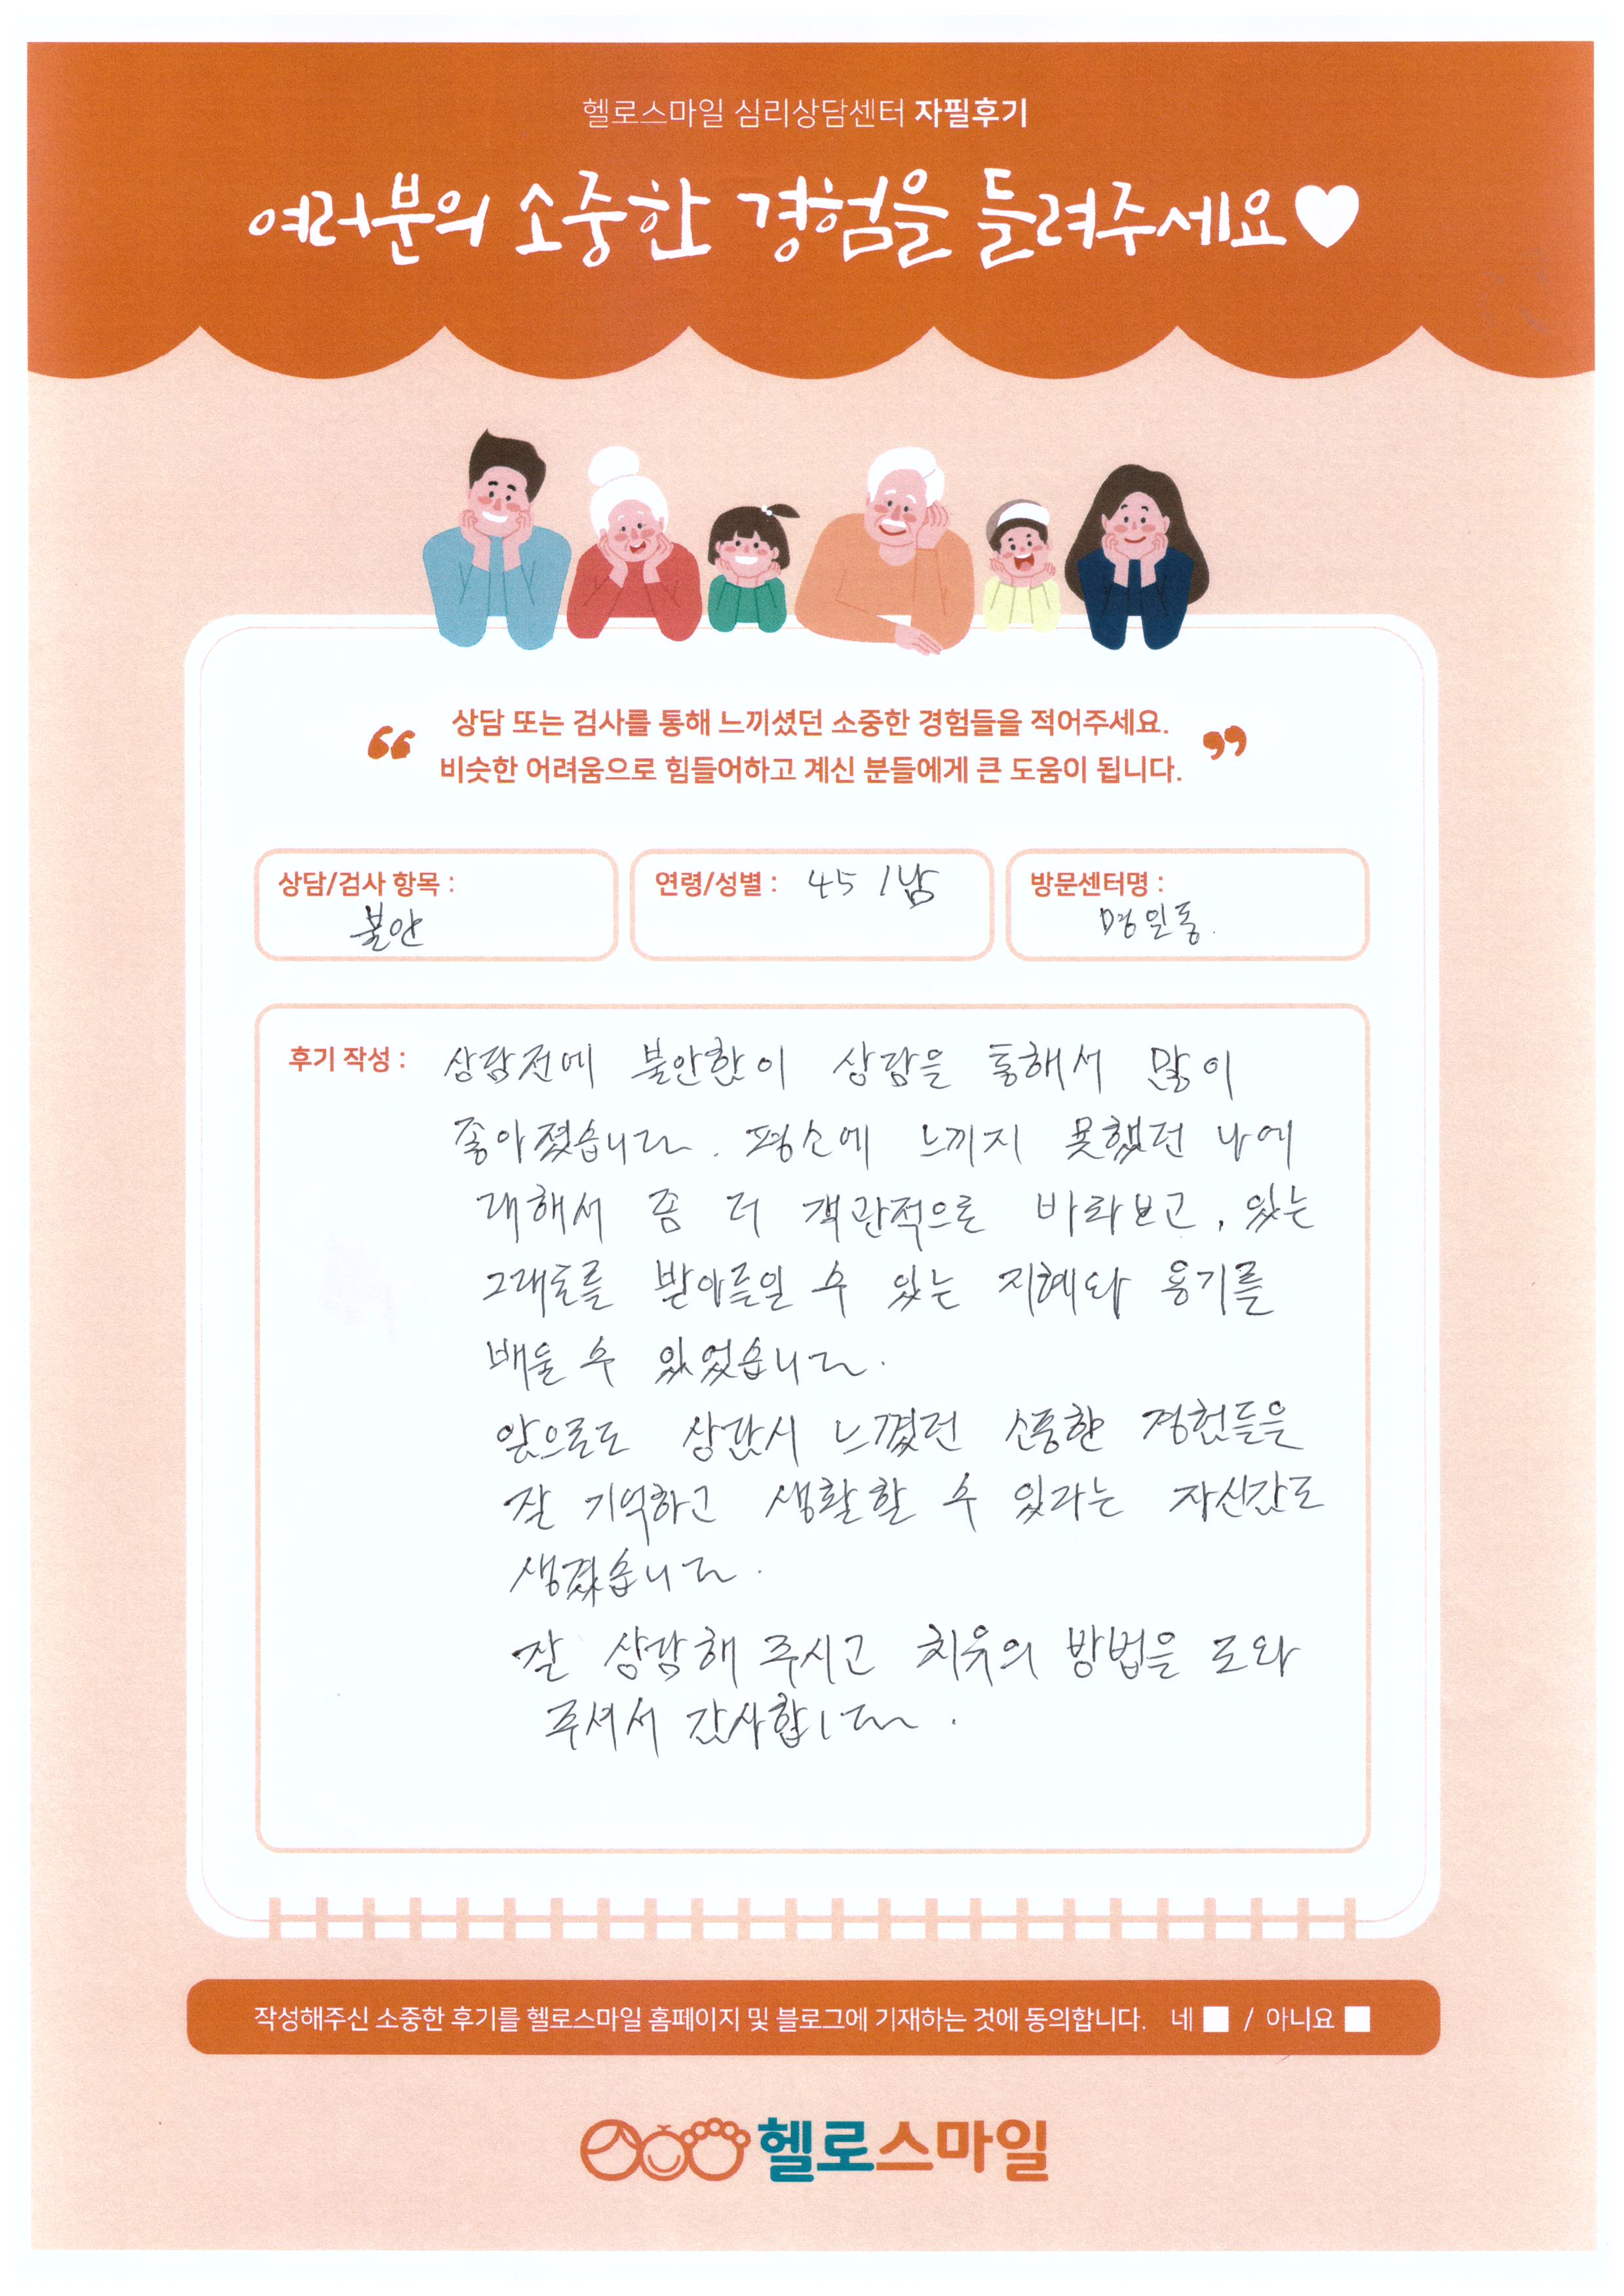 헬로스마일 심리상담센터 자필후기
여러분의 소중한 경험을 들려주세요
상담 또는 검사를 통해 느끼셨던 소중한 경험들을 적어주세요.
비슷한 어려움으로 힘들어하고 계신 분들에게 큰 도움이 됩니다.
상담/검사 항목 : 불안
연령/성별 : 45 / 남
방문센터명 : 명일동.
후기 작성 : 상담전에 불안함이 상담을 통해서 많이
좋아졌습니다. 평소에 느끼지 못했던 나에
대해서 좀 더 객관적으로 바라보고, 있는
그대로를 받아들일 수 있는 지혜와 용기를
배울 수 있었습니다.
앞으로도 상담시 느꼈던 소중한 경험들을
잘 기억하고 생활할 수 있다는 자신감도
생겼습니다.
잘 상담해 주시고 치유의 방법을 도와
주셔서 감사합니다.
작성해주신 소중한 후기를 헬로스마일 홈페이지 및 블로그에 기재하는 것에 동의합니다. 네 / 아니요
헬로스마일